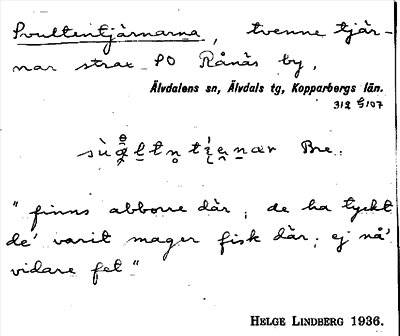 Svultentjärnarna, tvenne tjär-
nar strax SO Rånäs by,
Älvdalens sn, Älvdals tg, Kopparbergs län.
312 G 107
Bre.
"finns abborre där, de ha tyckt
de' varit mager fisk där; ej nå'
vidare fet"
HELGE LINDBERG 1936.